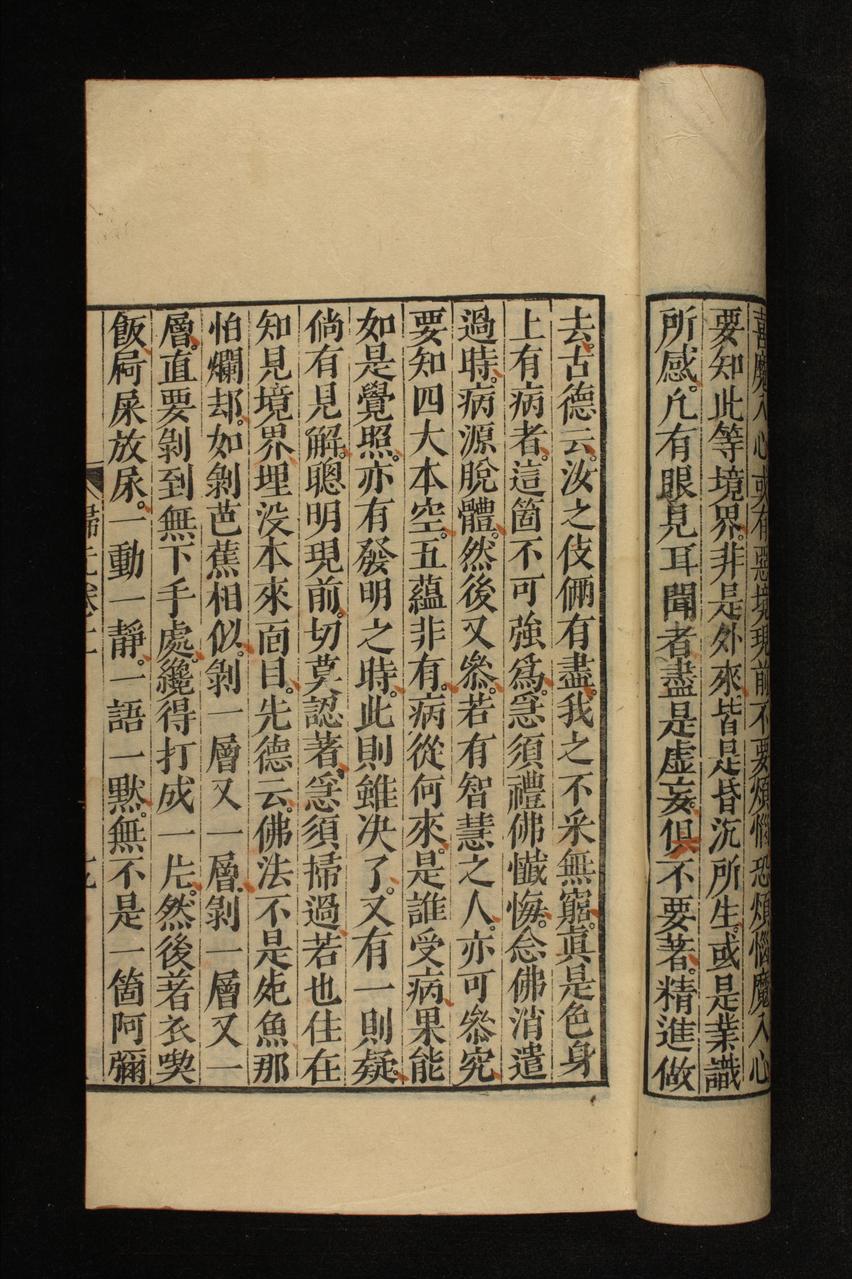 喜魔入心或有惡境現前不要煩惱恐煩惱魔入心
要知此等境界。非是外來皆是昏沉所生。或是業識
所感。凢有眼見耳聞者盡是虛妄。但不要著。精進做
去。古德云。汝之伎倆有盡。我之不采無窮。真是色身
上有病者。這箇不可強爲。急須禮佛懺悔。念佛消遣
過時。病源脫體。然後又叅。若有智慧之人。亦可叅究
要知四大本空。五蘊非有。病從何來。是誰受病。果能
如是覺照。亦有發明之時。此則雖决了。又有一則疑。
倘有見解。聰明現前。切莫認著。急須掃過若也住在
知見境界埋没本來面目。先德云。佛法不是死魚那
怕爛却。如剝芭蕉相似。剝一層又一層。剝一層又一
層。直要剝到無下手處。纔得打成一片。然後著衣喫
飯。屙屎放尿。一動一靜。一語一默。無不是一箇阿彌
歸元卷二